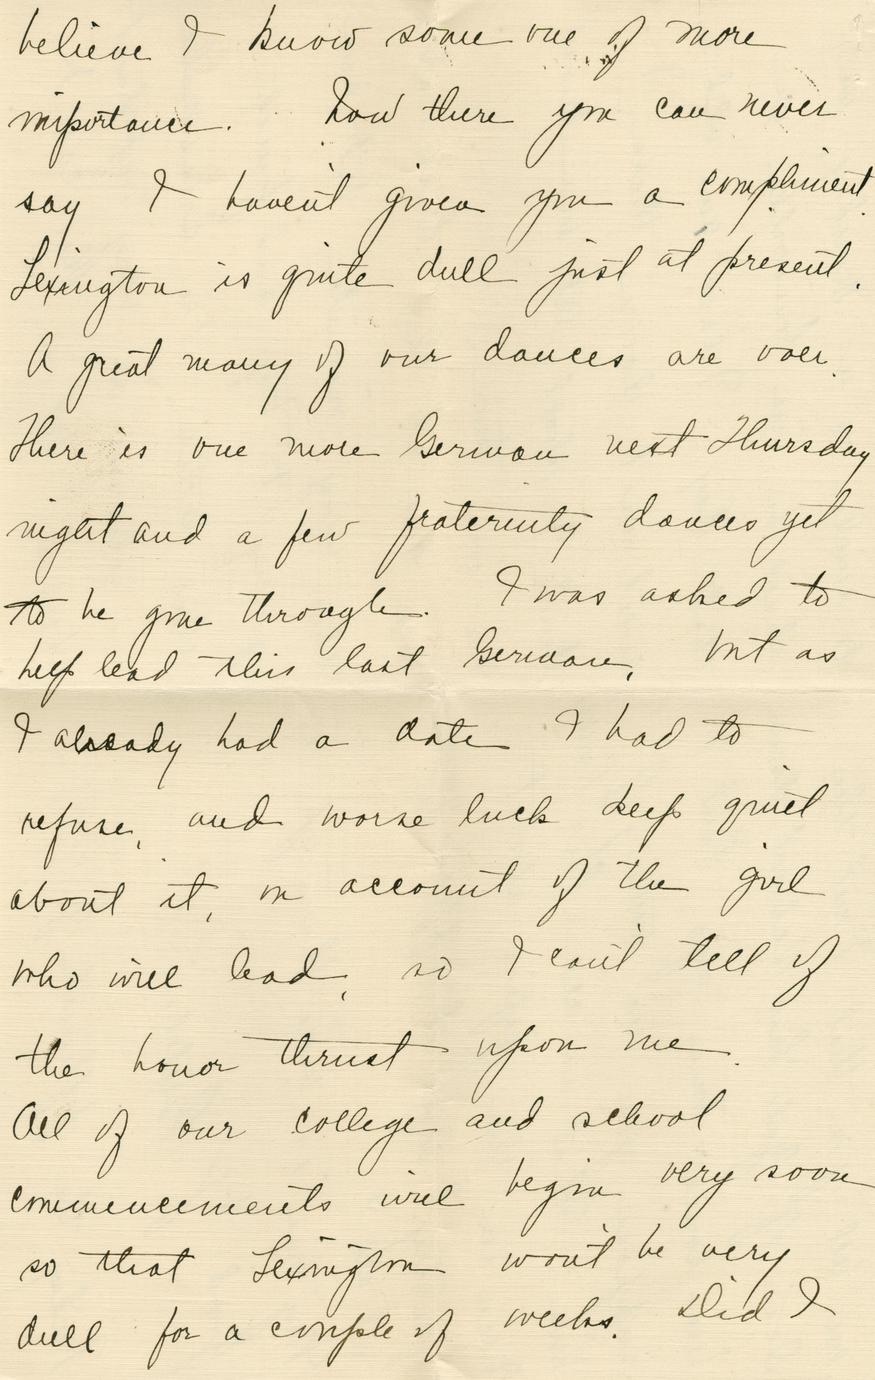 believe I know some one of more
importance. Now there you can never
say I haven't given you a compliment.
Lexington is quite dull just at present.
A great many of our dances are over.
There is one more German next Thursday
night and a few fraternity dances yet
to be gone through. I was asked to
help lead this last German, but as
I already had a date I had to
refuse, and worse luck keep quiet
about it, on account of the girl
who will lead, so I can't tell of
the honor thrust upon me.
All of our college and school
commencements will begin very soon
so that Lexington won't be very
dull for a couple of weeks. Did I